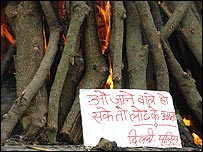 ओ जाने वाले हो
सके तो लौट के आना
दिल्ली पुलिस